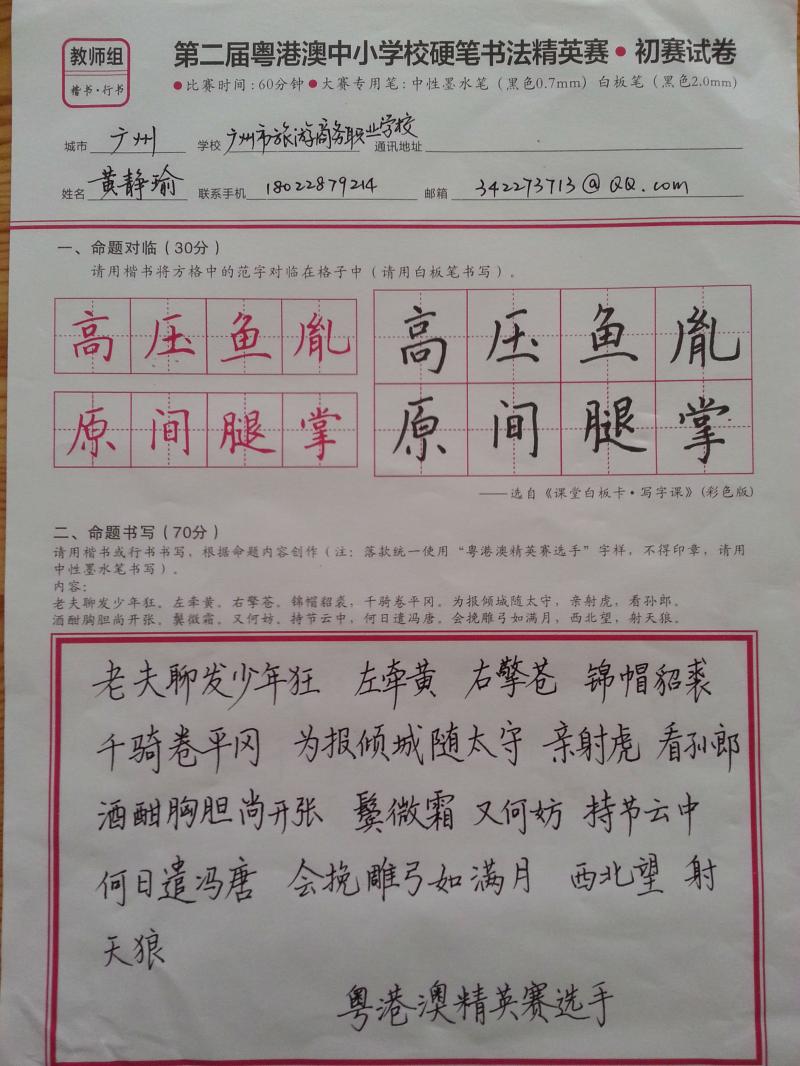 教师组
楷书·行书
第二届粤港澳中小学校硬笔书法精英赛·初赛试卷
●比赛时间:60分钟●大赛专用笔:中性墨水笔(黑色0.7mm)白板笔(黑色2.0mm)
城市 广州 学校 广州市旅游商务职业学校 通讯地址
姓名 黄静瑜 联系手机 18022879214 邮箱 342273713@QQ.com
一、命题对临(30分)
请用楷书将方格中的范字对临在格子中(请用白板笔书写)。
高压鱼胤 高压鱼胤
原间腿掌 原间腿掌
——选自《课堂白板卡·写字课》(彩色版)
二、命题书写(70分)
请用楷书或行书书写,根据命题内容创作(注:落款统一使用“粤港澳精英赛选手”字样,不得印章,请用
中性墨水笔书写)。
内容:
老夫聊发少年狂。左牵黄。右擎苍。锦帽貂裘,千骑卷平冈。为报倾城随太守,亲射虎,看孙郎。
酒酣胸胆尚开张。鬓微霜。又何妨。持节云中,何日遣冯唐。会挽雕弓如满月,西北望,射天狼。
老夫聊发少年狂 左牵黄 右擎苍 锦帽貂裘
千骑卷平冈 为报倾城随太守 亲射虎 看孙郎
酒酣胸胆尚开张 鬓微霜 又何妨 持节云中
何日遣冯唐 会挽雕弓如满月 西北望 射
天狼
粤港澳精英赛选手